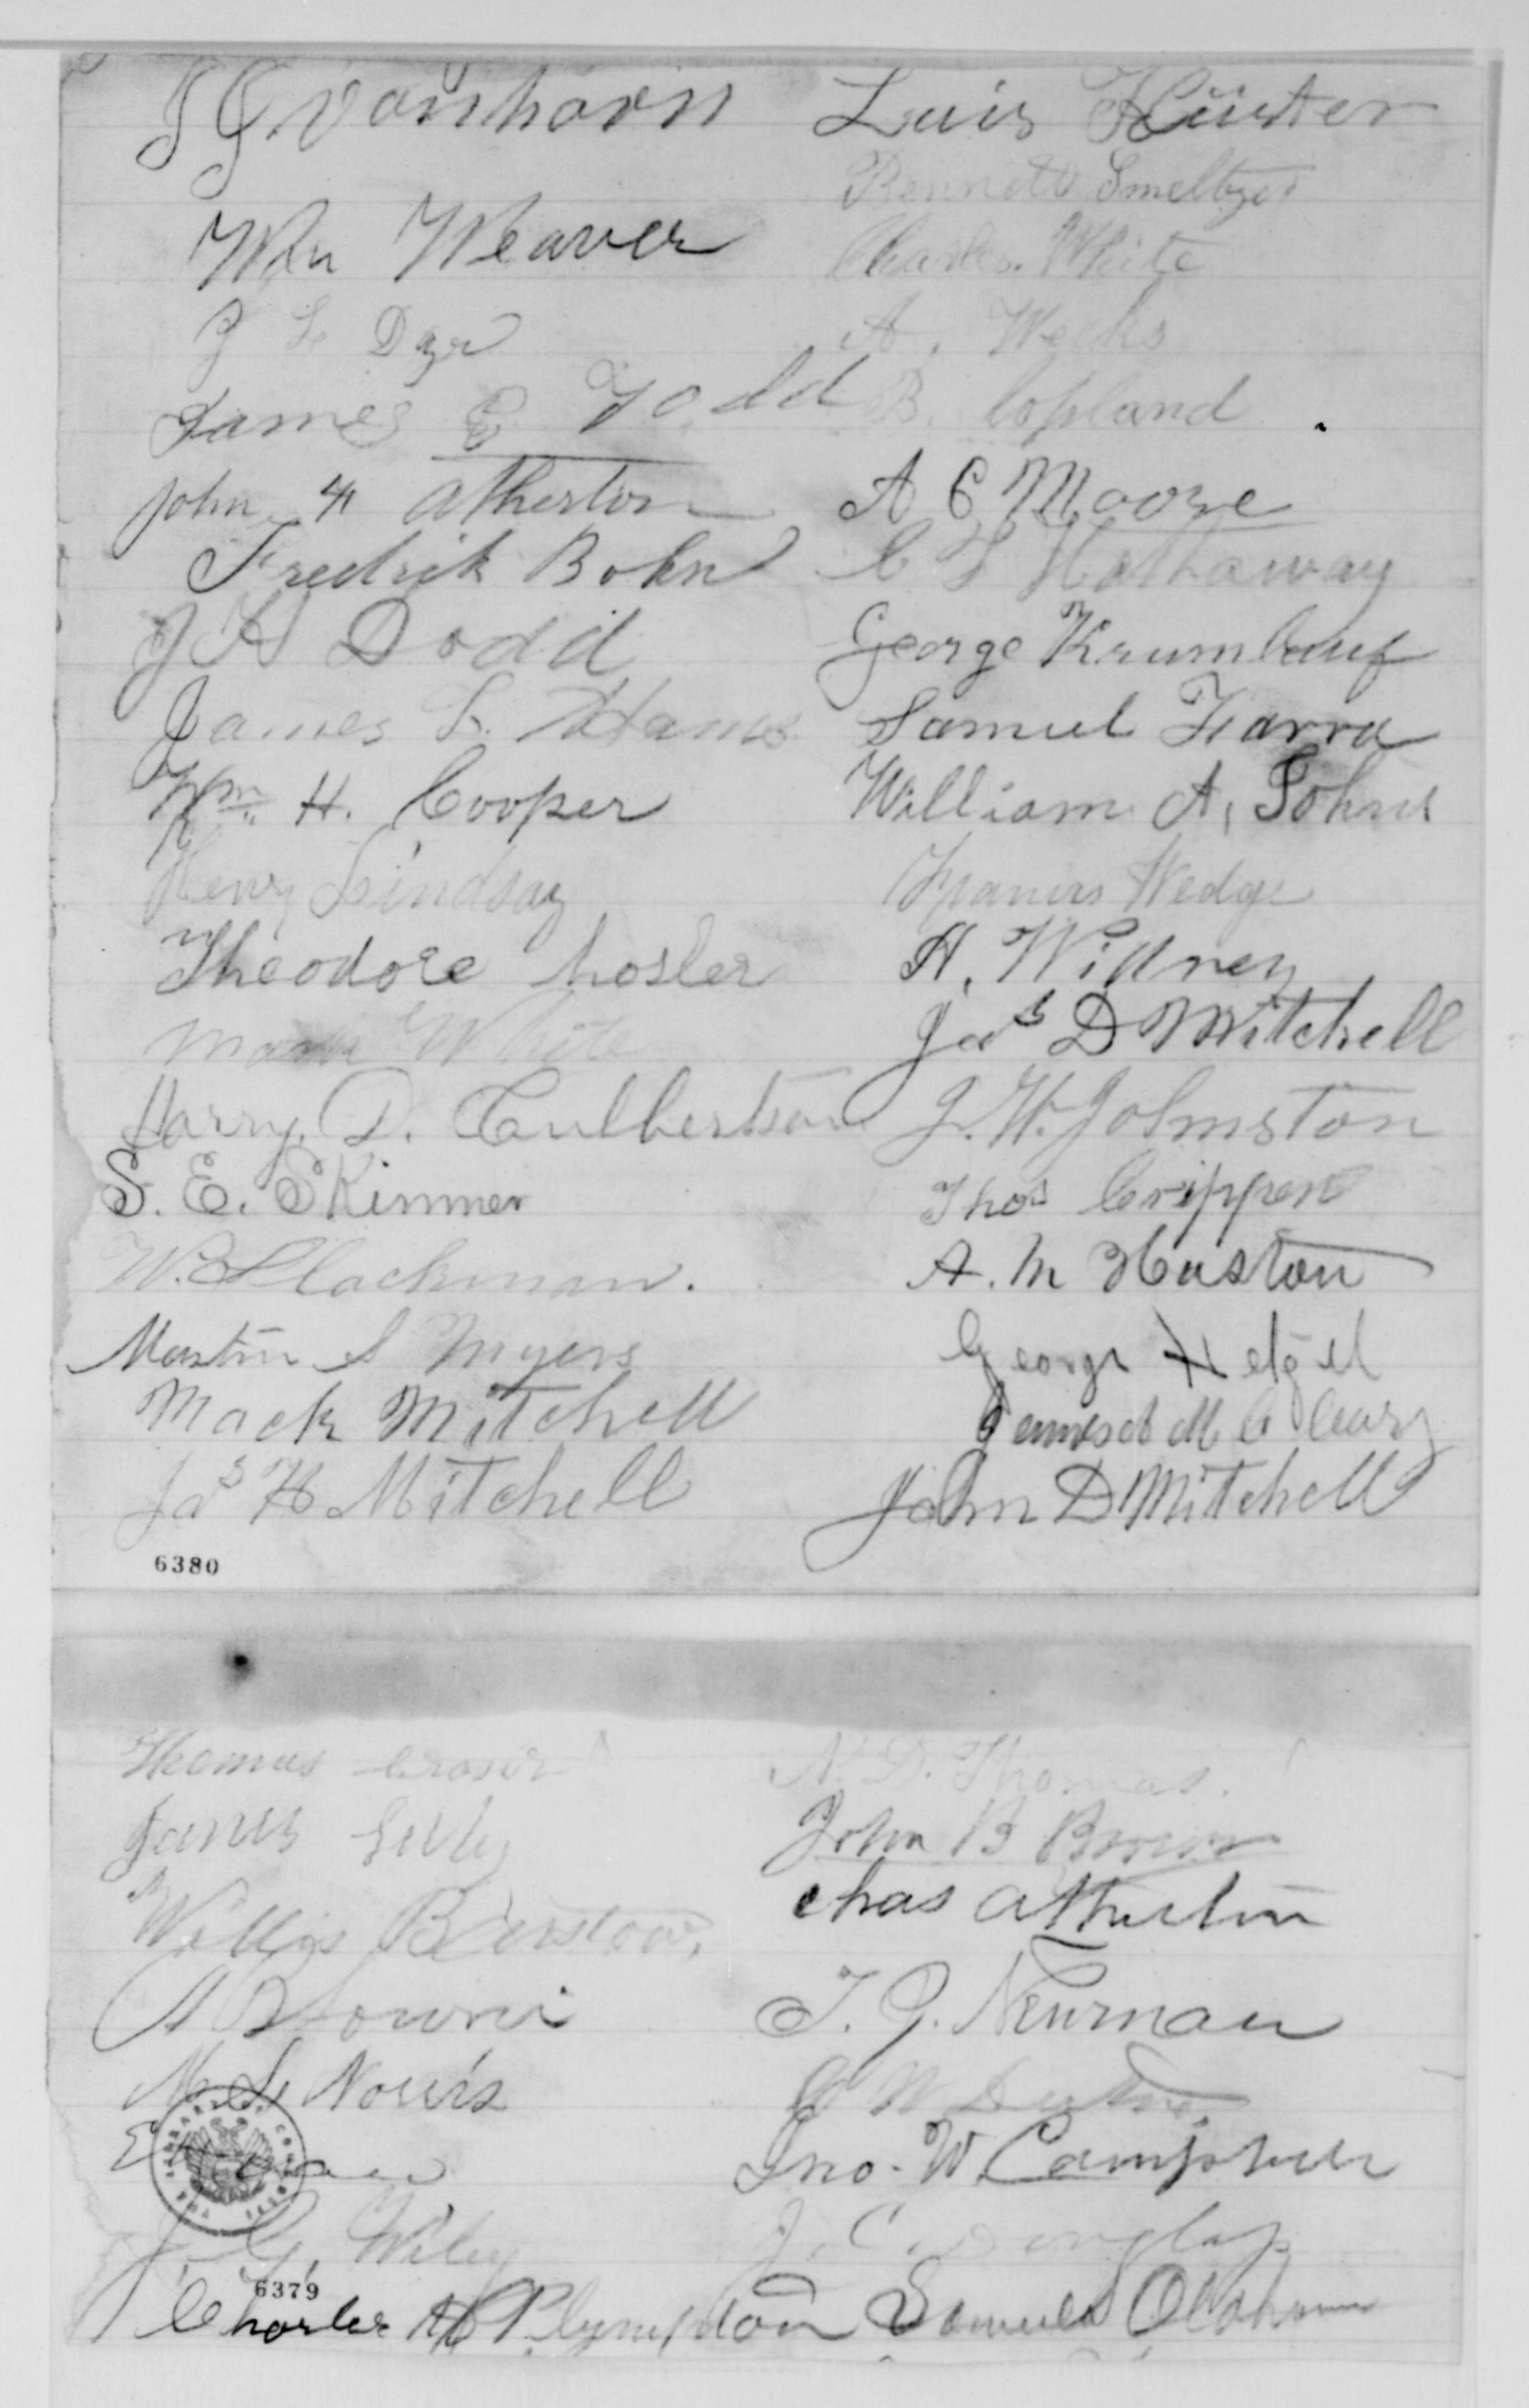 J G Vanhorn
Wm Weaver
J L Dyer
James E Todd
John H Atherton
Fredrik Bohn
J H Dodd
James L. Adams
Wm H. Cooper
Henry Lindsay
Theodore Mosler
Mark White
Harry D. Culbertson
S. E. Skinner
W. Blackman.
Martin S Myers
Mack Mitchell
Jas H Mitchell
6380
Luis Küster
Bennett Smeltzer
Charles White
A. Weeks
B. Copland
A C Moore
C L Hathaway
George Krumlauf
Samuel Farra
William A. Johns
Francis Wedge
A. Widney
Jas D Mitchell
J. W. Johnston
Thos Crippen
A. M Huston
George Hetzel
James M Cleary
John D Mitchell
Thomas Crosier
James
Willis Barstow.
M. L. Norris
J. G. Wiley
6379
Charles H Plympton
N. D. Thomas.
John B Brown
Chas Atherton
T. G. Newman
Jno. W. Campbell
J. C. Dunlap
Samuel Oldham